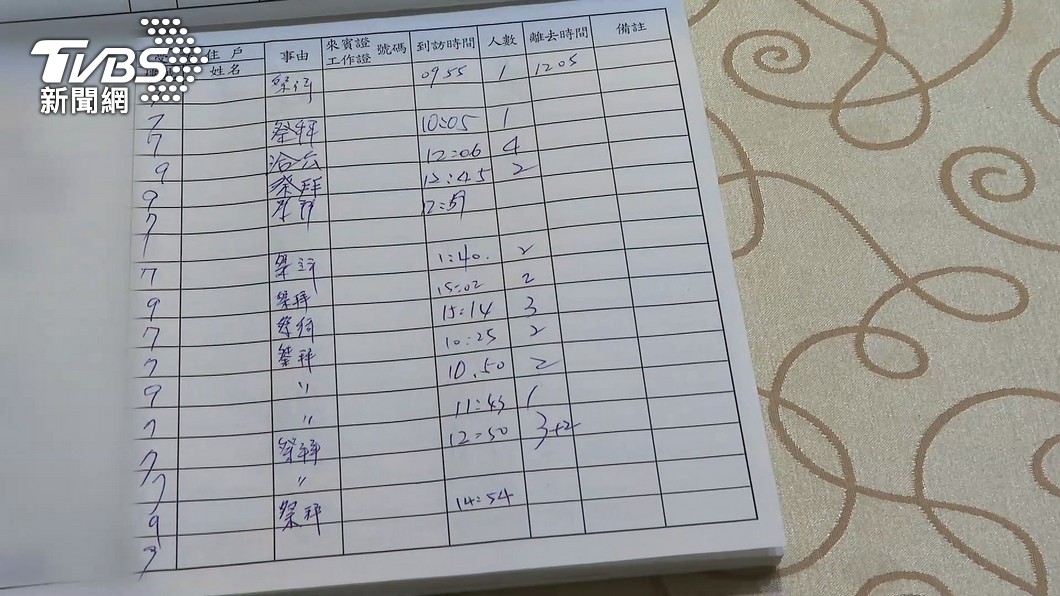 TVBS
新聞網
住戶姓名 事由 來賓證工作證號碼 到訪時間 人數 離去時間 備註
0955 1 1205
7 祭拜 10:05 1
7 洽公 12:06 4
9 祭拜 12:45 2
9
7
7 1:40. 2
9 祭拜 15:02 2
7 15:14 3
7 祭拜 10:25 2
9 〃 10.50 2
7 〃 11:45 1
7 祭拜 12:50 3+2
7 〃
9 祭拜 14:54
7